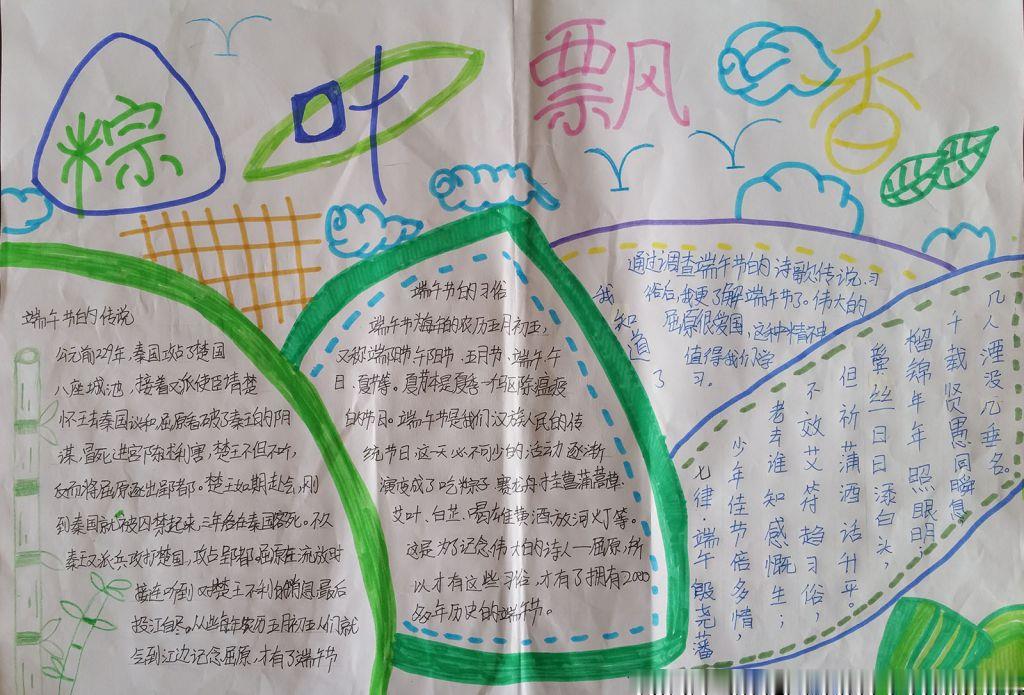 粽叶飘香
端午节的传说
公元前229年,秦国攻占了楚国
八座城池,接着又派使臣请楚
怀王去秦国议和,屈原看破了秦王的阴
谋,冒死进宫陈述利害,楚王不但不听,
反而将屈原逐出郢都。楚王如期赴会,刚
到秦国就被囚禁起来,三年后在秦国客死。不久
秦王又派兵攻打楚国,攻占郢都,屈原在流放时
接连听到对楚王不利的消息,最后
投江自尽。从此每年农历五月初五人们就
会到江边记念屈原,才有了端午节
端午节的习俗
端午节为每年的农历五月初五,
又称端阳节、午日节、五月节、端午
日、夏节等。夏节本是夏季驱除瘟疫
的节日。端午节是我们汉族人民的传
统节日这天必不可少的活动逐渐
演变成了吃粽子、赛龙舟、挂菖蒲蒿草、
艾叶、白芷、喝雄黄酒、放河灯等。
这是为了记念伟大的诗人——屈原,所
以才有这些习俗,才有了拥有2000
多年历史的端午节。
我知道了
通过调查端午节的诗歌、传说、习
俗后,我更了解端午节了。伟大的
屈原很爱国,这种精神
值得我们学
习。
七律·端午 殷尧藩
少年佳节倍多情,
老去谁知感慨生;
不效艾符趋习俗,
但祈蒲酒话升平。
鬓丝日日添白头,
榴锦年年照眼明;
千载贤愚同瞬息,
几人湮没几垂名。